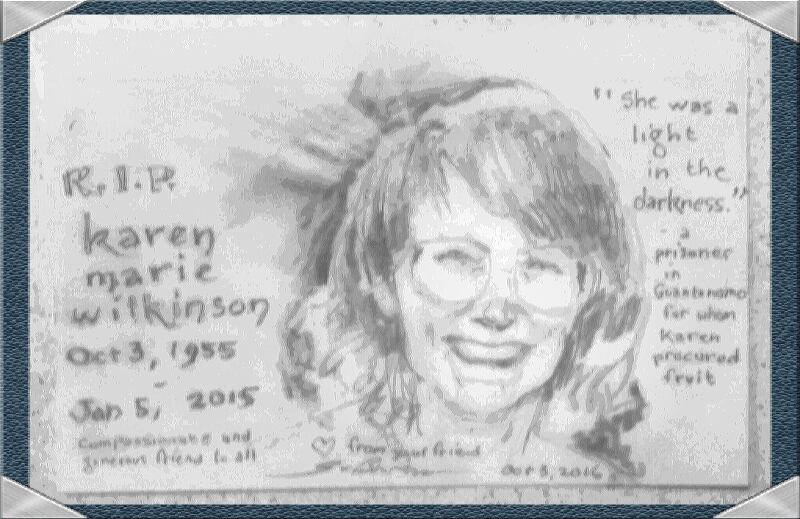 R.I.P.
karen
marie
wilkinson
Oct 3, 1955
Jan 5, 2015
Compassionate and
generous friend to all
"She was a
light
in the
darkness."
- a
prisoner
in
Guantanamo
for whom
Karen
procured
fruit
♡ from your friend
Oct 3, 2016